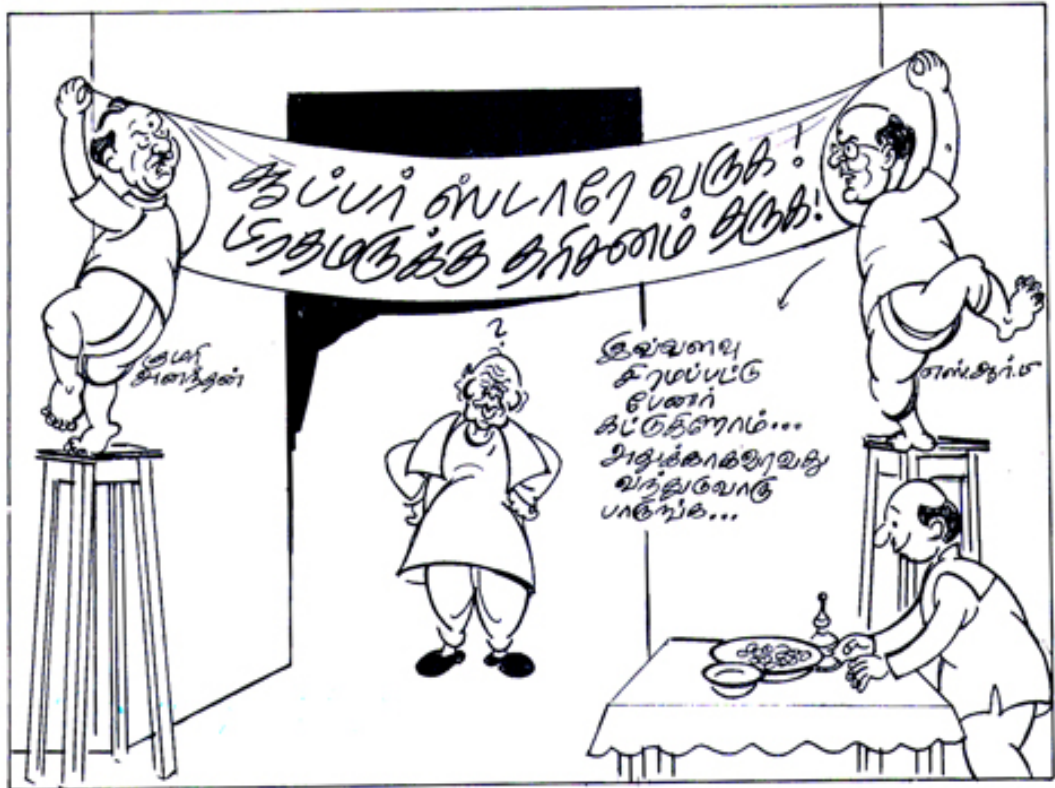 சூப்பர் ஸ்டாரே வருக!
பிரதமருக்கு தரிசனம் தருக!
குமரி
அனந்தன்
?
இவ்வளவு
சிரமப்பட்டு
பேனர்
கட்டுகிறோம்...
அதுக்காகவாவது
வந்துடுவாரு
பாருங்க...
எஸ்.ஆர்.பி